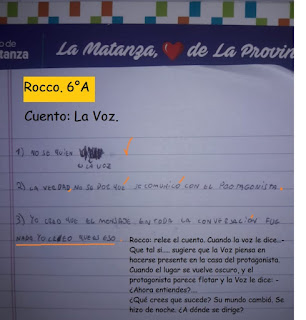 o de
tanza
La Matanza, ❤ de La Provin
Rocco. 6°A
Cuento: La Voz.
1) NO SE QUIEN
ES LA VOZ
2) LA VERDAD NO SE POR QUE SE COMUNICO CON EL PROTAGONISTA.
3) YO CREO QUE EL MENSAGE EN TODA LA CONVERSACION FUE
NADA YO CREO QUE ES ESO.
Rocco: relee el cuento. Cuando la voz le dice..-
Que tal si.... sugiere que la Voz piensa en
hacerse presente en la casa del protagonista.
Cuando el lugar se vuelve oscuro, y el
protagonista parece flotar y la Voz le dice: -
¿Ahora entiendes?....
¿Qué crees que sucede? Su mundo cambió. Se
hizo de noche. ¿A dónde se dirige?